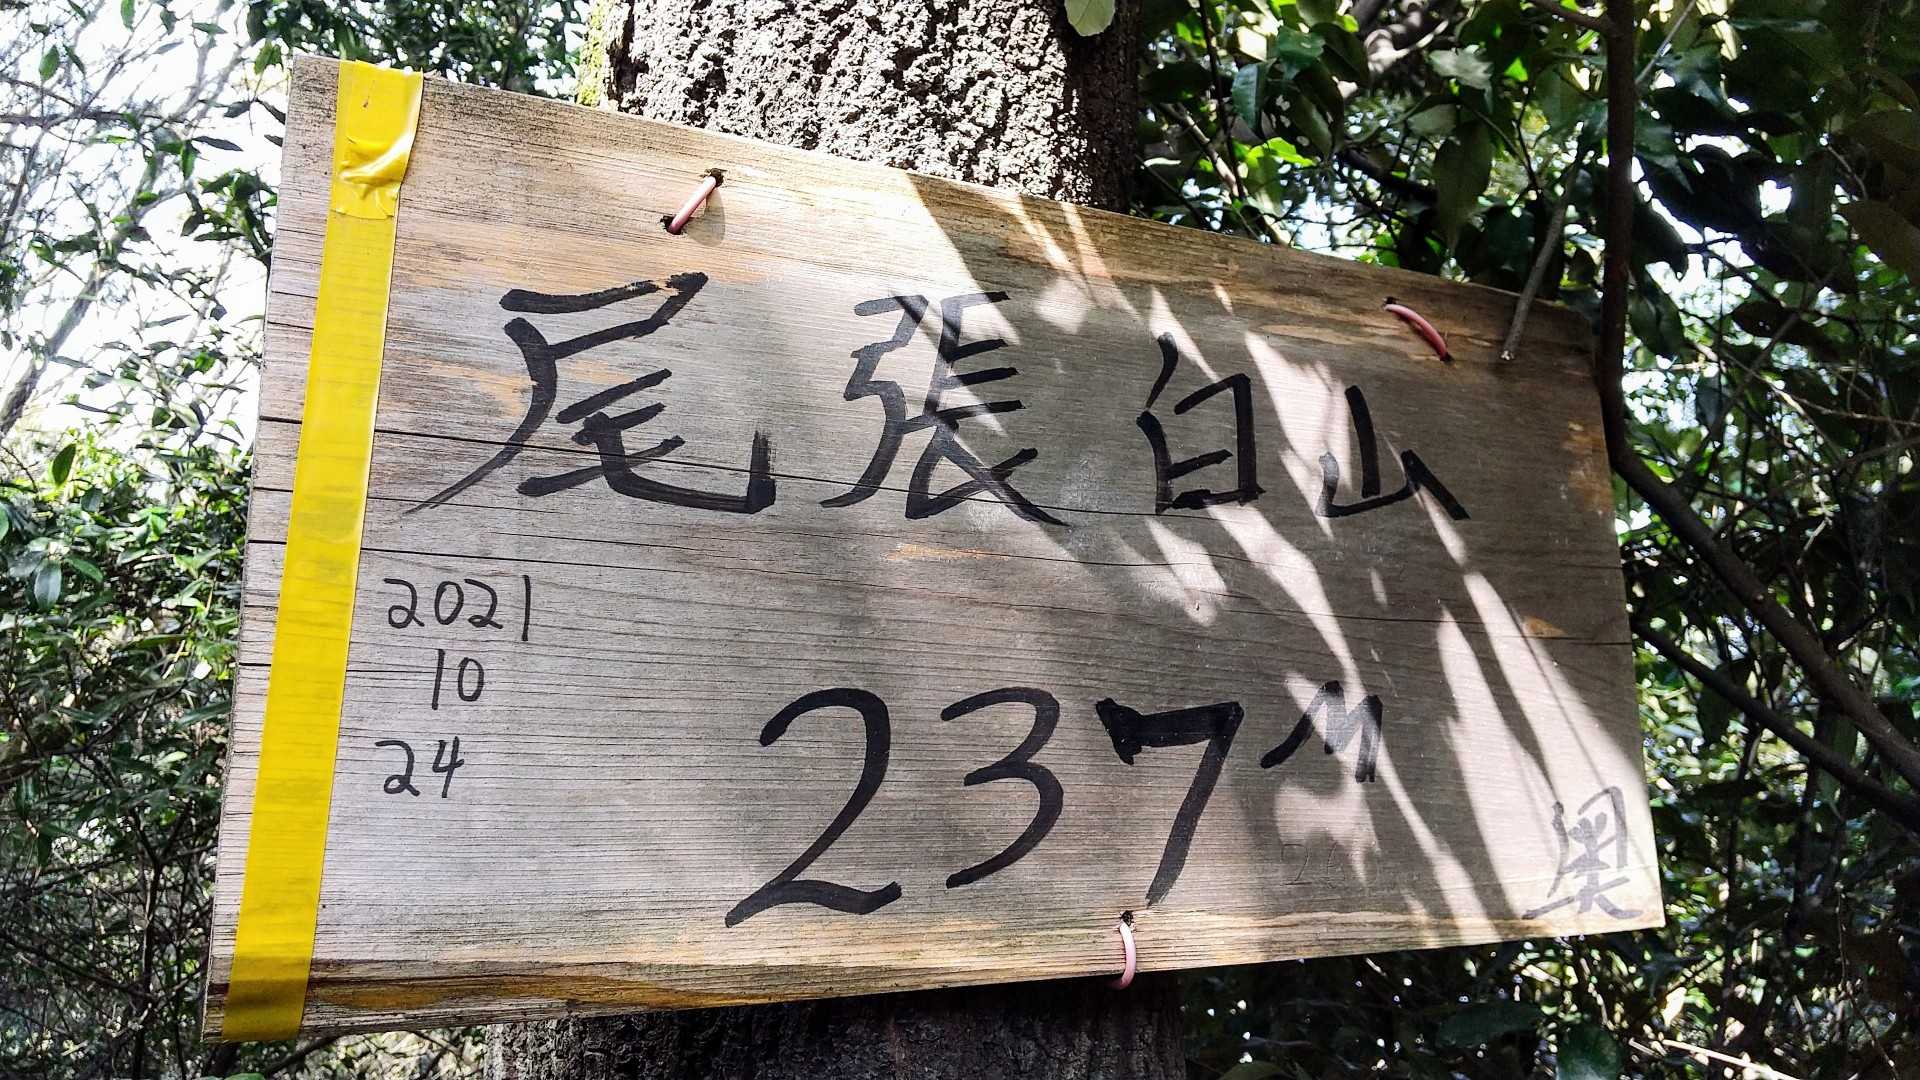 尾張白山
2021
10
24
237M
奥